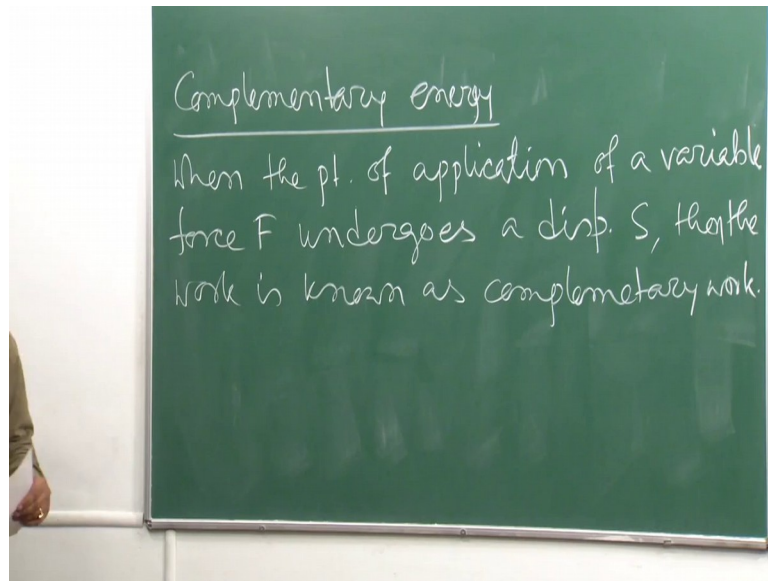 Complementary energy
When the pt. of application of a variable
force F undergoes a disp. S, then the
work is known as complemetary work.